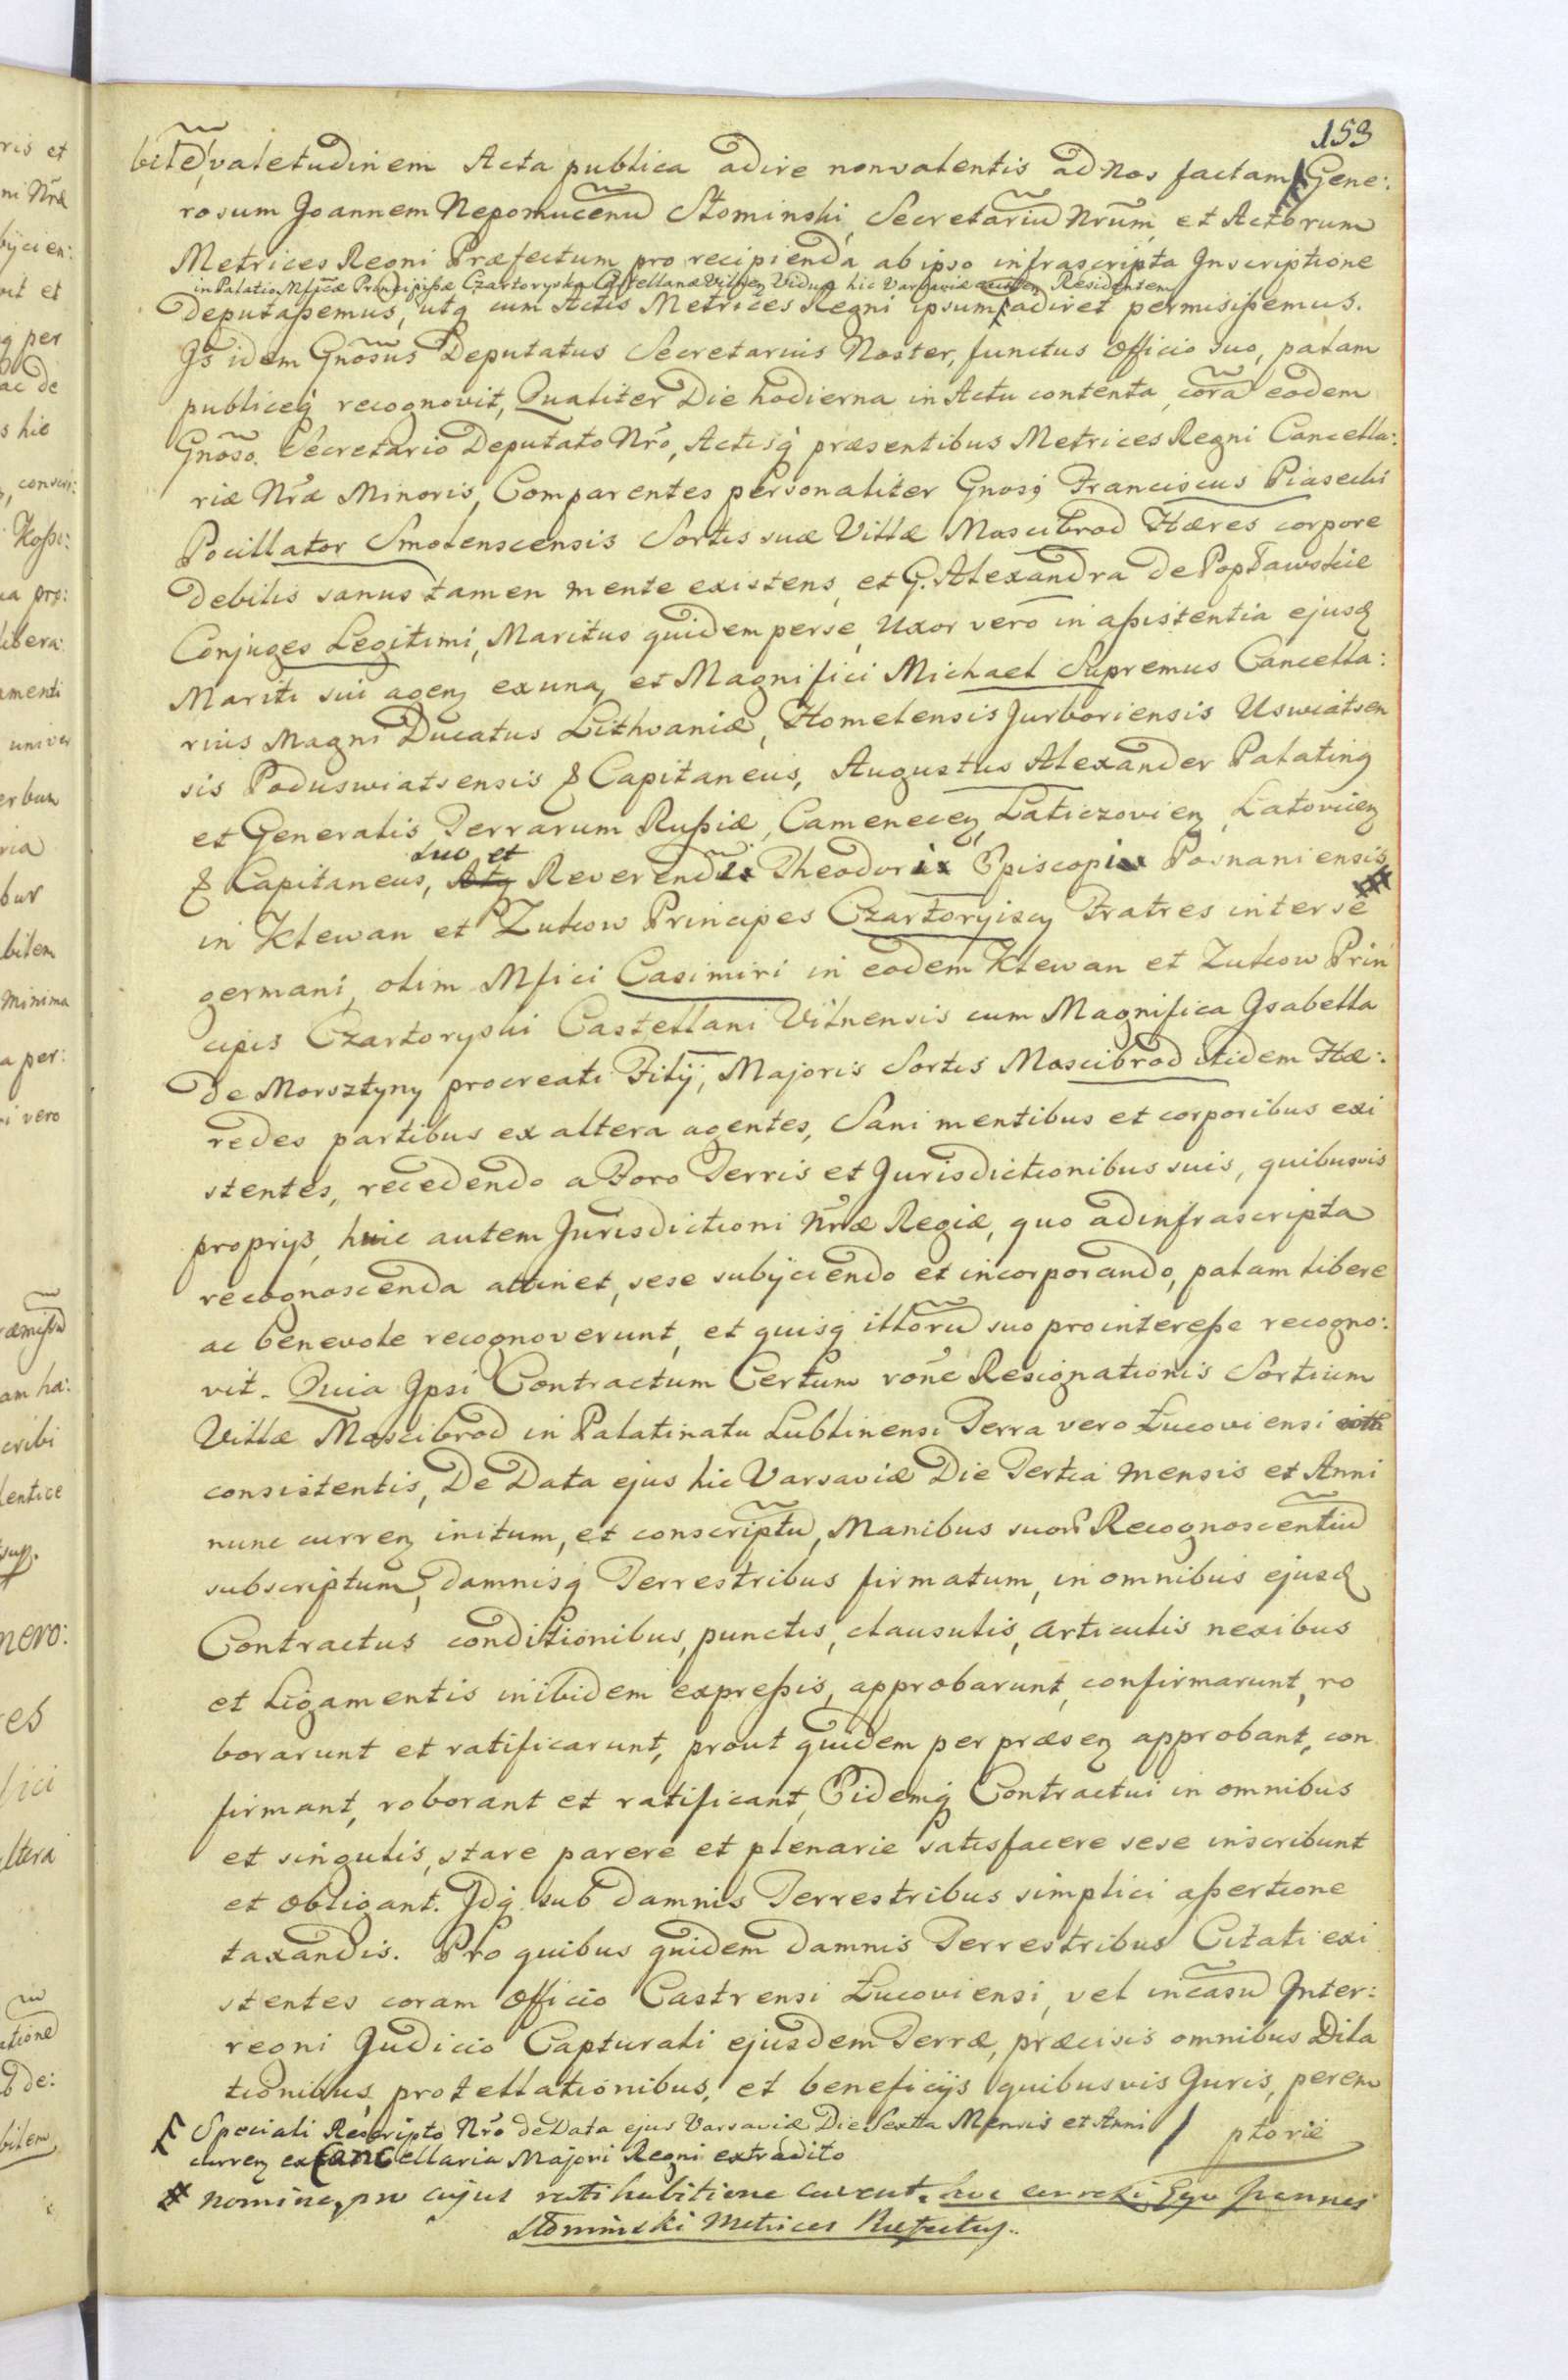 153
bilẽ, valetudinem Acta publica adire non valentis ad Nos factam Gene:
rosum Joannem Nepomucenũ Słominski, Secretariũ Nrũm, et Actorum
Metrices Regni Præfectum pro recipienda ab ipso infrascripta Inscriptione
in Palatio Mficæ Principissæ Czartoryska Castellanæ Vilnen Viduæ hic Varsaviæ Residentem
deputassemus, utq cum Actis Metrices Regni ipsum adiret permisissemus.
Is idem Gnosus Deputatus Secretarius Noster, functus officio suo, palam
publiceq recognovit, Qualiter Die hodierna in Actu contenta, corã eodem
Gnoso. Secretario Deputato Nro, Actisq præsentibus Metrices Regni Cancella:
riæ Nræ Minoris, Comparentes personaliter Gnosi Franciscus Piasecki
Pocillator Smolenscensis Sortis suæ Villæ Moscibrod Hæres corpore
debilis sanus tamen mente existens, et G. Alexandra de Popławskie
Conjuges Legitimi, Maritus quidem per se, Uxor vero in assistentia ejusd
Mariti sui agen ex una, et Magnifici Michael Supremus Cancella:
rius Magni Ducatus Lithvaniæ, Homelensis Jurboriensis Uswiatsen
sis Poduswiatsensis & Capitaneus, Augustus Alexander Palatinq
et Generalis Terrarum Russiæ, Camenecen, Laticzovien, Latovicen
suo et
& Capitaneus, Reverendi Theodori Episcopi Posnaniensis
in Klewan et Zukow Principes Czartoryiscy Fratres inter se
germani, olim Mfici Casimiri in eodem Klewan et Zukow Prin
cipis Czartoryski Castellani Vilnensis cum Magnifica Isabella
de Morsztyny procreati Filij, Majoris Sortis Moscibrod itidem Hæ:
redes partibus ex altera agentes, Sani mentibus et corporibus exi
stentes, recedendo a Foro Terris et Jurisdictionibus suis, quibusvis
proprijs, huic autem Jurisdictioni Nræ Regiæ, quo ad infrascripta
recognoscenda attinet, sese subijciendo et incorporando, palam libere
ac benevole recognoverunt, et quisq illorũ suo pro interesse recogno:
vit. Quia Ipsi Contractum Certum rone Resignationis Sortium
Villæ Moscibrod in Palatinatu Lublinensi Terra vero Łucoviensi
consistentis, De Data ejus hic Varsaviæ Die Tertia Mensis et Anni
nunc curren initum, et conscriptũ, Manibus suor Recognoscentiũ
subscriptum, damnisq Terrestribus firmatum, in omnibus ejusd
Contractus conditionibus, punctis, clausulis, articulis nexibus
et Ligamentis inibidem expressis, approbarunt, confirmarunt, ro
borarunt et ratificarunt, prout quidem per præsen approbant, con
firmant, roborant et ratificant, Eidemq Contractui in omnibus
et singulis, stare parere et plenarie satisfacere sese inscribunt
et obligant. Idq sub damnis Terrestribus simplici assertione
taxandis. Pro quibus quidem damnis Terrestribus Citati exi
stentes coram Officio Castrensi Łucoviensi, vel in casũ Inter:
regni Judicio Capturali ejusdem Terræ, præcisis omnibus Dila
tionibus, protellationibus, et beneficijs quibusvis Juris, perem
ptorie
Speciali Rescripto Nro de Data ejus Varsaviæ Die Sexta Mensis et Anni
curren ex Cancellaria Majori Regni extradito
# nomine, pro cujus ratihabitione cavent. hoc correxi Ego Joannes
Słominski Metrices Præfectus.